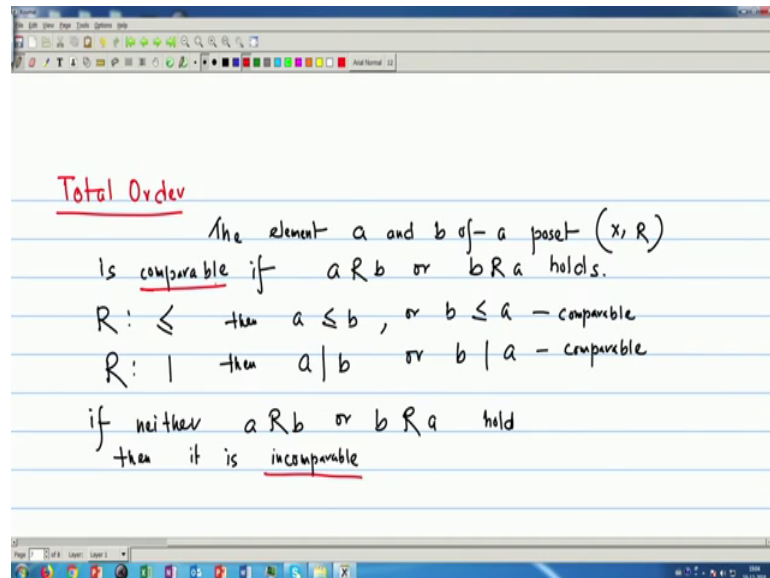 File Edit View Page Tools Options Help
Arial Normal 12
Total Order
The element a and b of a poset (x, R)
Is comparable if a R b or b R a holds.
R : ≤ then a ≤ b , or b ≤ a – comparable
R : | then a | b or b | a – comparable
if neither a R b or b R a hold
then it is incomparable
Page 7 of 8 Layer: Layer 1